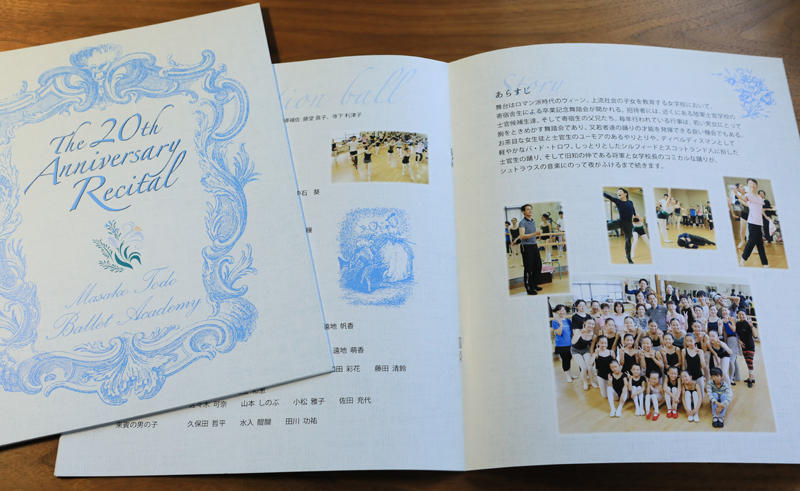 The 20th
Anniversary
Recital
Masako Todo
Ballet Academy
ion ball
藤堂 眞子、寺下 利津子
石 葵
遠地 帆香
遠地 萌香
田 彩花 藤田 清鈴
可奈 山本 しのぶ 小松 雅子 佐田 充代
来賓の男の子 久保田 哲平 水入 醍醐 田川 功祐
Story
あらすじ
舞台はロマン派時代のウィーン。上流社会の子女を教育する女学校において、
寄宿舎生による卒業記念舞踏会が開かれる。招待客には、近くにある陸軍士官学校の
士官候補生達、そして寄宿生の父兄たち。毎年行われている行事は、若い男女にとって
胸をときめかす舞踏会であり、又若者達の踊りの才能を発揮できる良い機会でもある。
お茶目な女生徒と士官生のユーモアのあるやりとりや、ディベルティスマンとして
軽やかなパ・ド・トロワ、しっとりとしたシルフィードとスコットランド人に扮した
士官生の踊り、そして旧知の仲である将軍と女学校長のコミカルな踊りが、
シュトラウスの音楽にのって夜がふけるまで続きます。